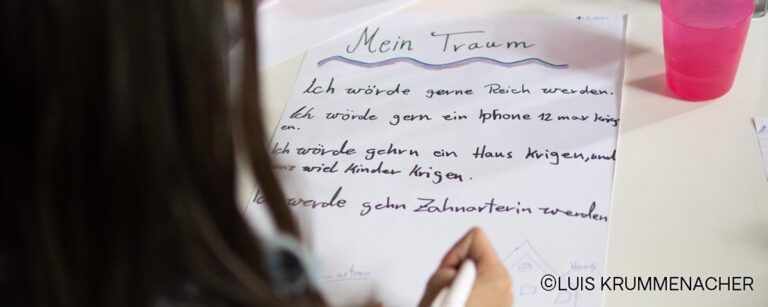 Mein Traum
Ich wörde gerne Reich werden.
Ich wörde gern ein Iphone 12 max krig
en.
Ich wörde gehrn ein Haus krigen, und
wiel Kinder Krigen.
Ich werde gehn Zahnarterin werden
Haus
©LUIS KRUMMENACHER